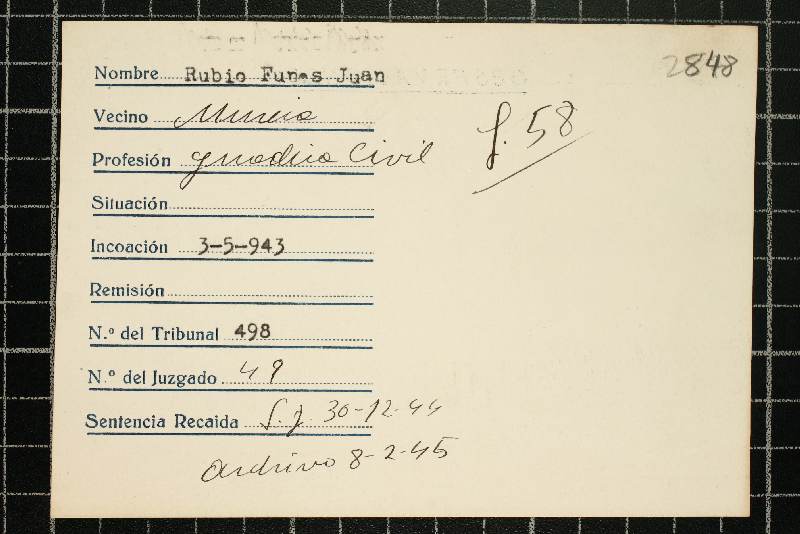 2848
Nombre Rubio Funes Juan
Vecino Murcia
f. 58
Profesión guardia Civil
Situación
Incoación 3-5-943
Remisión
N.º del Tribunal 498
N.º del Juzgado 49
Sentencia Recaida S. j. 30-12-44
Archivo 8-2-45